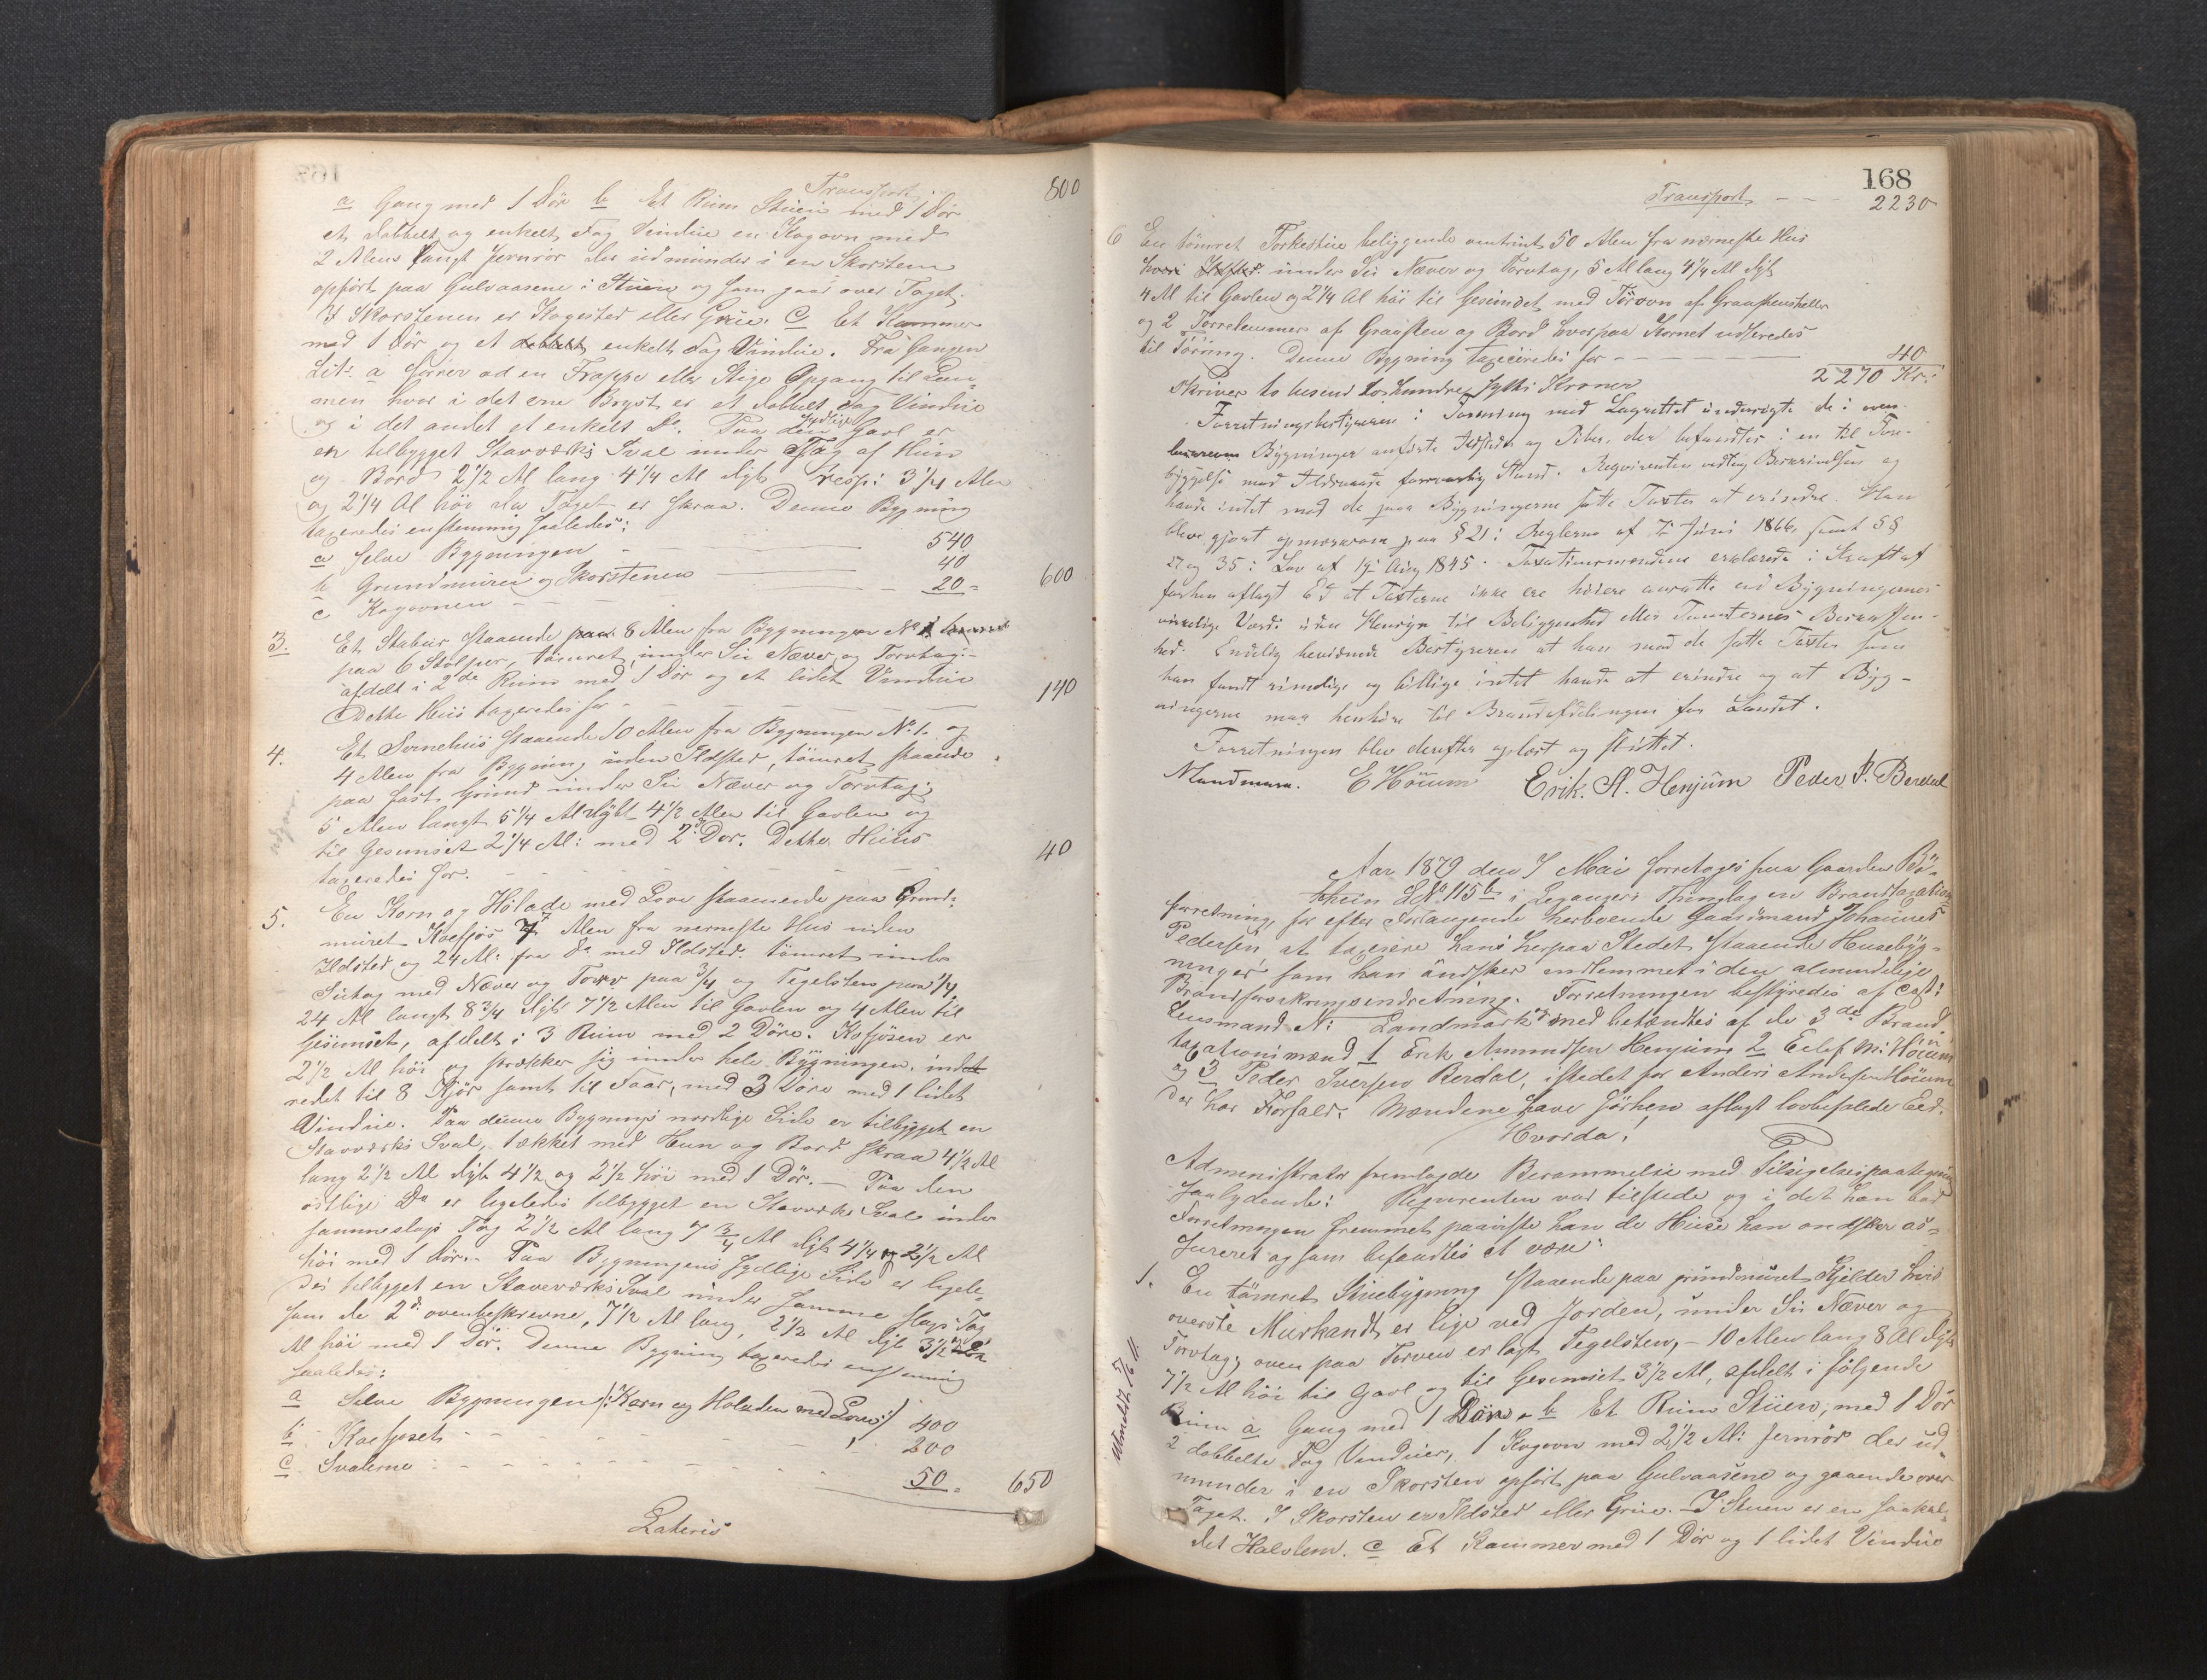 Transport 800
a Gang med 1 Dör b Et Rum Stuen med 1 Dör
et dobbelt og enkelt Fag Vindue en Kogovn med
2 Alens langt Jernrör der udmunder i en Skorsten
opfört paa Gulvaasene i Stuen og som gaar over Taget.
I Skorstenen er Kogested eller Grue. c Et Kammer
med 1 Dör og et dobbelt enkelt Fag Vindue. Fra Gangen
Litr. a förrer ad en Trappe eller Stige Opgang til Lem-
men hvor i det ene Bryst er et dobbelt Fag Vindue
og i det andet et enkelt Do. Paa den sydlige Gavl er
en tilbygget Stavværks Sval under Tag af Hun
og Bord 2 1/2 Al lang 4 1/4 Al dyb resp: 3 1/4 Alen
og 2 1/4 Al höi da Taget er skraa. Denne Bygning
taxeredes enstemmig saaledes:
a Selve Bygningen 540
b Grundmuren og Skorstenen 40
c Kogovnen 20 = 600
3. Et Stabur staaende paa 8 Alen fra Bygningen No 1
paa 6 Stolper, tömret, under Su Næver og Torvtag:
afdelt i 2de Rum med 1 Dör og et lidet Vindue
Dette Hus taxeredes for 140
4. Et Sornehus staaende 10 Alen fra Bygningen No 1. og
4 Alen fra Bygning uden Ildsted, tömret staaende
paa fast Grund under Su Næver og Torvtag;
5 Alen langt 5 1/4 Al dybt 4 1/2 Alen til Gavlen og
til Gesimset 2 1/4 Al: med 2 Dör. Dette Huus
taxeredes for. 40
5. En Korn og Hölade med Love staaende paa Grund-
muret Koefjös 7 Alen fra nærmeste Hus uden
Ildsted og 24 Al: fra do med Ildsted. tömret under
Sutag med Næver og Torv paa 3/4 og Tegelsten paa 1/4,
24 Al langt 8 3/4 dybt 7 1/2 Alen til Gavlen og 4 Alen til
Gesimset, afdelt i 3 Rum med 2 Döre. Kofjösen er
2 1/2 Al höi og strækker sig under hele Bygningen, indet
redet til 8 Kjör samt til Faar, med 3 Döre med 1 lidet
Vindue. Paa denne Bygnings nordlige Side er tilbygget en
Stavværks Sval, tækket med Hun og Bord skraa 4 1/2 Al
lang 2 1/2 Al dyb 4 1/2 og 2 1/2 höi med 1 Dör. — Paa den
östlige Do er ligeledes tilbygget en Stavværks Sval under
sammeslags Tag 2 1/2 Al lang 7 3/4 Al dyb 4 1/4 og 2 1/2 Al
höi med 1 Dör. - Paa Bygningens sydlige Side er ligele-
des tilbygget en Staveværks Sval under samme slags Tag
som de 2de ovenbeskrevne, 7 1/2 Al lang, 2 1/2 Al dyb 3 1/2
Al höi med 1 Dör. Denne Bygning taxeredes enstemmig
saaledes:
a Selve Bygningen /: Korn og Höladen med Love :/ 400
b Koefjoset 200
c Svalerne 50 = 650
Lateris
168
Transport 2230
6 En tömret Torkestue beliggende omtrint 50 Alen fra nærmeste Hus
hvori under Su Næver og Torvtag, 5 Al lang 4 1/4 Al dyb
4 Al til Gavlen og 2 1/4 Al höi til Gesimset med Törovn af Graastensheller
og 2 Törrelemmer af Graasten og Bord hvorpaa Kornet udbredes
til Törring. Denne Bygning taxeredes for 40
2270 Kr:
Skriver to tusend to Hundrede Sytti Kroner
Forretningsbestyreren i Forening med Lagrettet undersögte de i oven-
Bygninger anförte Ildsteder og Piber, der befandtes i en til Fore-
byggelse mod Ildsvaade forsvarlig Stand. Reqvirenten vedtog Beskrivelsen og
havde intet mod de paa Bygningerne satte Taxter at erindre. Han
blev gjort opmærksom paa § 21 i Reglerne af 7 Juni 1866, samt §§
27 og 35 i Lov af 19 Aug 1845. Taxationsmændene erklærede i Kraft af
forhen aflagt Ed at Taxterne ikke ere höiere ansatte end Bygningernes
virkelige Værdi uden Hensyn til Beliggenhed eller Tomternes Beskaffen-
hed. Endelig bevidnede Bestyreren at han mod de satte Taxter som
han fandt rimelige og billige intet havde at erindre og at Byg-
ningerne maa henhöre til Brandafdelingen for Landet.
Forretningen blev derefter oplæst og sluttet.
Landmark. E Höium Erik. A. Henjum Peder I. Berdal
Aar 1879 den 7 Mai forretoges paa Gaarden Bö-
thun LNo 115b i Leganger Thinglag en Brandtaxations
forretning, for efter Forlangende herboende Gaardmand Johannes
Pedersen at taxere hans herpaa Stedet staaende Husebyg-
ninger som han öndsker indlemmet i den almindelige
Brandforsikringsindretning. Forretningen bestyredes af Cst:
Lensmand N: Landmark med betændtes af de 3de Brand-
taxationsmænd 1 Erik Amundsen Henjum 2 Eilef M: Höium
og 3 Peder Iversen Berdal, istedet for Anders Andersen Höium
der har Forfald. Mændene have förhen aflagt lovbefalede Eed.
Hvorda!
Administrator fremlagde Berammelse med Tilsigelsespaategning
saalydende: Reqvirenten var tilstede og i det han bad
Forretningen fremmet paaviste han de Huse han öndsker as-
sureret og som befandtes at være:
1. En tömret Stuebygning staaende paa grundmuret Kjelder hvis
överste Murkandt er lige ved Jorden, under Su Næver og
Torvtag; oven paa Torven er lagt Tegelsten, - 10 Alen lang 8 Al dyb
7 1/2 Al höi til Gavl og til Gesimset 3 1/2 Al, afdelt i fölgende
Rum a Gang med 1 Dör - b Et Rum Stuen, med 1 Dör
2 dobbelte Fag Vinduer, 1 Kogovn med 2 1/2 Al: Jernrör der ud-
munder i en Skorsten opfört paa Gulvaasene og gaaende over
Taget. I Skorsten er Ildsted eller Grue. - I Stuen er en saakal-
det Halvlem. c Et Kammer med 1 Dör og 1 lidet Vindue